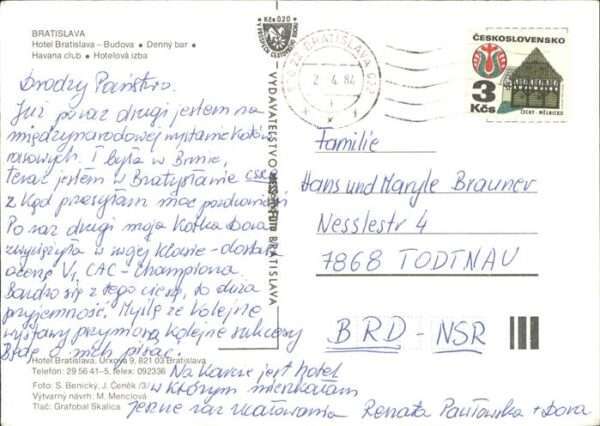 BRATISLAVA
Hotel Bratislava – Budova • Denný bar •
Havana club • Hotelová izba
Drodzy Państwo.
Już po raz drugi jestem na
międzynarodowej wystawie kotów
rasowych. I była w Brnie,
teraz jestem w Bratysławie CSRS
z kąd przesyłam moc pozdrowień
Po raz drugi moja kotka Dora
zwyciężyła w swojej klasie – dostała
ocenę V1 CAC – Championa.
Bardzo się z tego cieszę, to duża
przyjemność. Myślę że kolejne
wystawy przyniosą kolejne sukcesy
Będę o nich pisać.
Hotel Bratislava, Urxova 9, 821 03 Bratislava
Telefón: 29 56 41–5, telex: 092336
Foto: S. Benický, J. Čeněk /3/
Výtvarný návrh: M. Menclová
Tlač: Grafobal Skalica
Na karcie jest hotel
w którym mieszkałam
Jeszcze raz ucałowania Renata Pawłowska + Dora
Kčs 0,20
VYDAVATEĽSTVO BRATISLAVA
BRATISLAVA
2. 4. 84
ČESKOSLOVENSKO
3 Kčs
ČECHY - MĚLNICKO
Familie
Hans und Maryle Brauner
Nesslestr 4
7868 TODTNAU
BRD - NSR